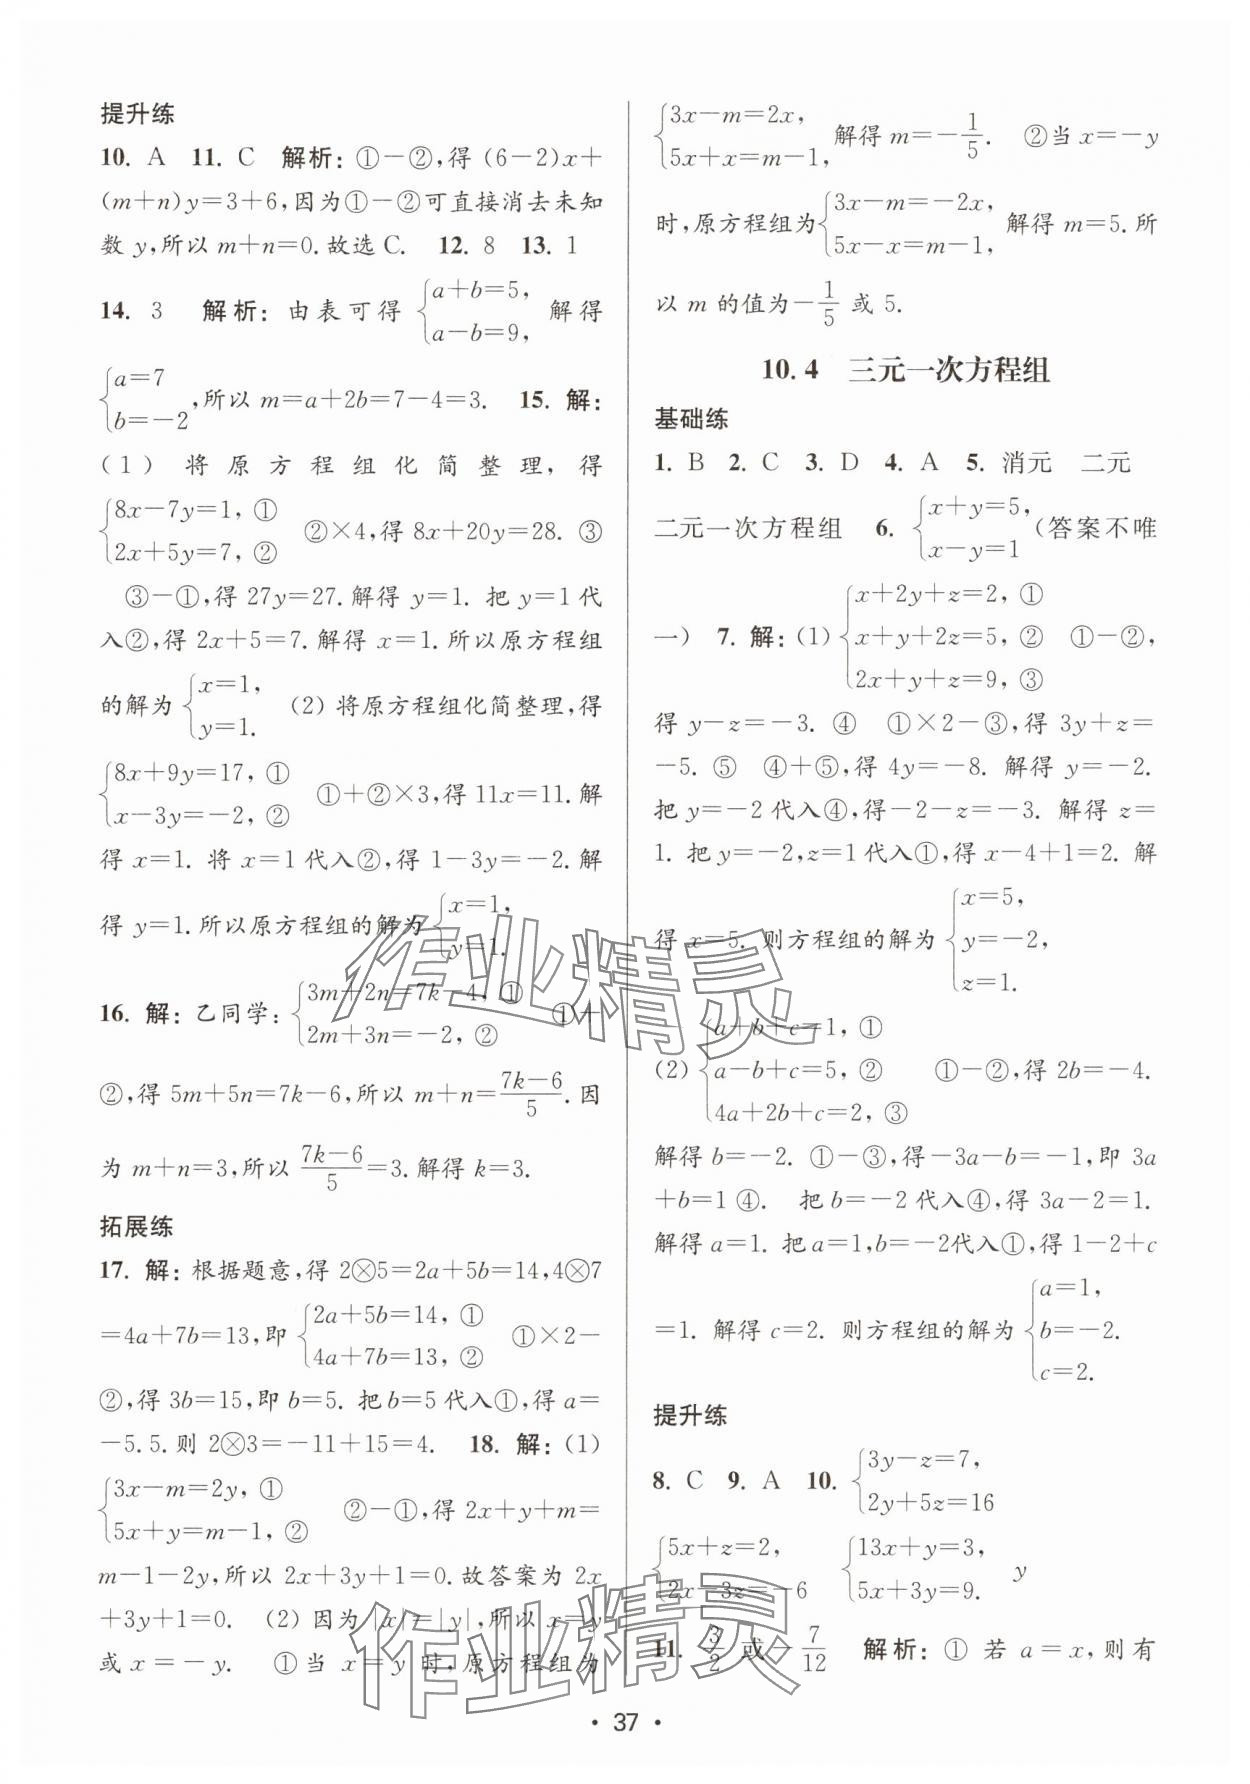 提升练
10. A 11. C 解析：①－②，得(6－2)x＋
(m＋n)y＝3＋6，因为①－②可直接消去未知
数 y，所以 m＋n＝0.故选 C. 12. 8 13. 1
14. 3 解析：由表可得 {a＋b＝5， a－b＝9， 解得
{a＝7 b＝－2 ，所以 m＝a＋2b＝7－4＝3. 15. 解：
(1) 将原方程组化简整理，得
{8x－7y＝1，① 2x＋5y＝7，② ②×4，得 8x＋20y＝28. ③
③－①，得 27y＝27.解得 y＝1. 把 y＝1 代
入②，得 2x＋5＝7.解得 x＝1.所以原方程组
的解为 {x＝1， y＝1. (2) 将原方程组化简整理，得
{8x＋9y＝17，① x－3y＝－2，② ①＋②×3，得 11x＝11.解
得 x＝1. 将 x＝1 代入②，得 1－3y＝－2.解
得 y＝1.所以原方程组的解为 {x＝1， y＝1.
16. 解：乙同学：{3m＋2n＝7k－4，① 2m＋3n＝－2，② ①＋
②，得 5m＋5n＝7k－6，所以 m＋n＝(7k－6)/5.因
为 m＋n＝3，所以 (7k－6)/5＝3.解得 k＝3.
拓展练
17. 解：根据题意，得 2⊗5＝2a＋5b＝14，4⊗7
＝4a＋7b＝13，即 {2a＋5b＝14，① 4a＋7b＝13，② ①×2－
②，得 3b＝15，即 b＝5. 把 b＝5 代入①，得 a＝
－5.5.则 2⊗3＝－11＋15＝4. 18. 解：(1)
{3x－m＝2y，① 5x＋y＝m－1，② ②－①，得 2x＋y＋m＝
m－1－2y，所以 2x＋3y＋1＝0.故答案为 2x
＋3y＋1＝0. (2) 因为|x|＝|y|，所以 x＝y
或 x＝－y. ①当 x＝y 时，原方程组为
{3x－m＝2x， 5x＋x＝m－1， 解得 m＝－1/5. ②当 x＝－y
时，原方程组为 {3x－m＝－2x， 5x－x＝m－1， 解得 m＝5.所
以 m 的值为－1/5 或 5.
10.4 三元一次方程组
基础练
1. B 2. C 3. D 4. A 5. 消元 二元
二元一次方程组 6. {x＋y＝5， x－y＝1 (答案不唯
一) 7. 解：(1) {x＋2y＋z＝2，① x＋y＋2z＝5，② 2x＋y＋z＝9，③ ①－②，
得 y－z＝－3. ④ ①×2－③，得 3y＋z＝
－5. ⑤ ④＋⑤，得 4y＝－8. 解得 y＝－2.
把 y＝－2 代入④，得－2－z＝－3. 解得 z＝
1. 把 y＝－2，z＝1 代入①，得 x－4＋1＝2. 解
得 x＝5. 则方程组的解为 {x＝5， y＝－2， z＝1.
(2) {a＋b＋c＝1，① a－b＋c＝5，② 4a＋2b＋c＝2，③ ①－②，得 2b＝－4.
解得 b＝－2. ①－③，得－3a－b＝－1，即 3a
＋b＝1 ④. 把 b＝－2 代入④，得 3a－2＝1.
解得 a＝1. 把 a＝1，b＝－2代入①，得 1－2＋c
＝1. 解得 c＝2. 则方程组的解为 {a＝1， b＝－2. c＝2.
提升练
8. C 9. A 10. {3y－z＝7， 2y＋5z＝16
{5x＋z＝2， 2x－3z＝－6 {13x＋y＝3， 5x＋3y＝9. y
11. 3/2 或－7/12 解析：① 若 a＝x，则有
作业精灵
作业精灵
• 37 •